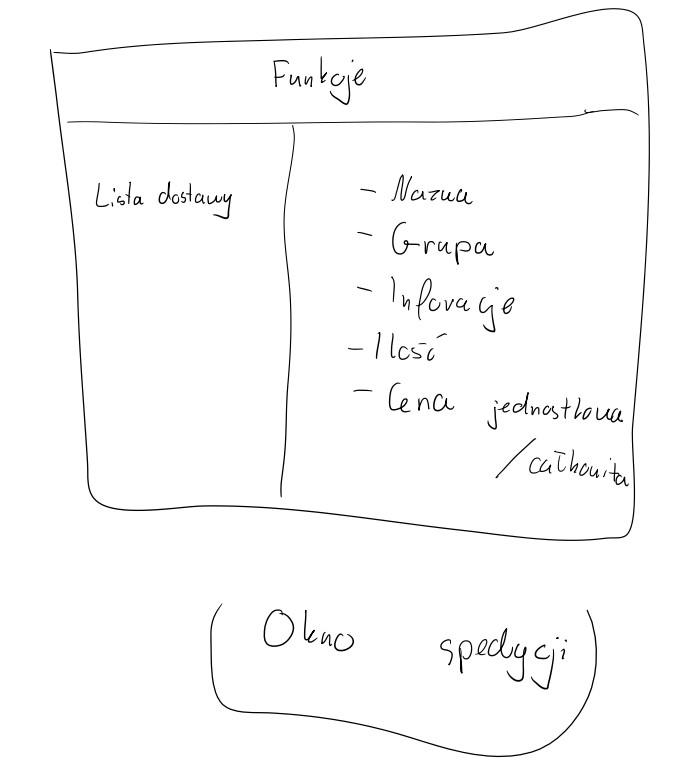 Funkcje
Lista dostawy
- Nazwa
- Grupa
- Inforacje
- Ilość
- Cena jednostkowa
/całkowita
Okno spedycji